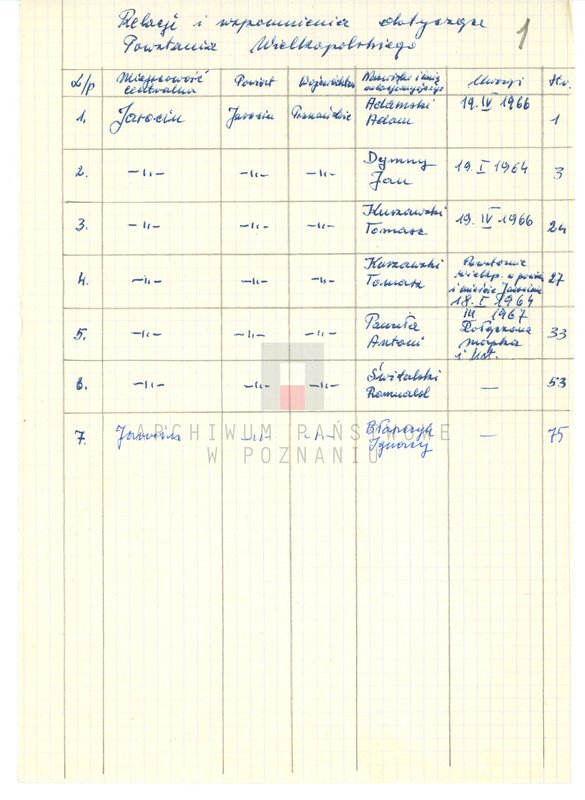 Relacji i wspomnienia dotyczące 1
Powstania Wielkopolskiego
L/p Miejscowość centralna Powiat Województwo Nazwisko i imię Uwagi Str.
1. Jarocin Jarocin Poznańskie Adamski Adam 19.IV 1966 1
2. -„- -„- -„- Dymny Jan 19.I 1964 3
3. -„- -„- -„- Kuszawski Tomasz 19.IV 1966 24
4. -„- -„- -„- Kuszawski Tomasz Powstanie wielkp. w i mieście Jarocinie 18.I 1964 27
5. -„- -„- -„- Pawuła Antoni III 1967 Dołączona mapka i 33
6. -„- -„- -„- Świtalski Romuald — 53
7. Jarocin -„- -„- Błaszczyk Ignacy — 75
ARCHIWUM PAŃSTWOWE
W POZNANIU